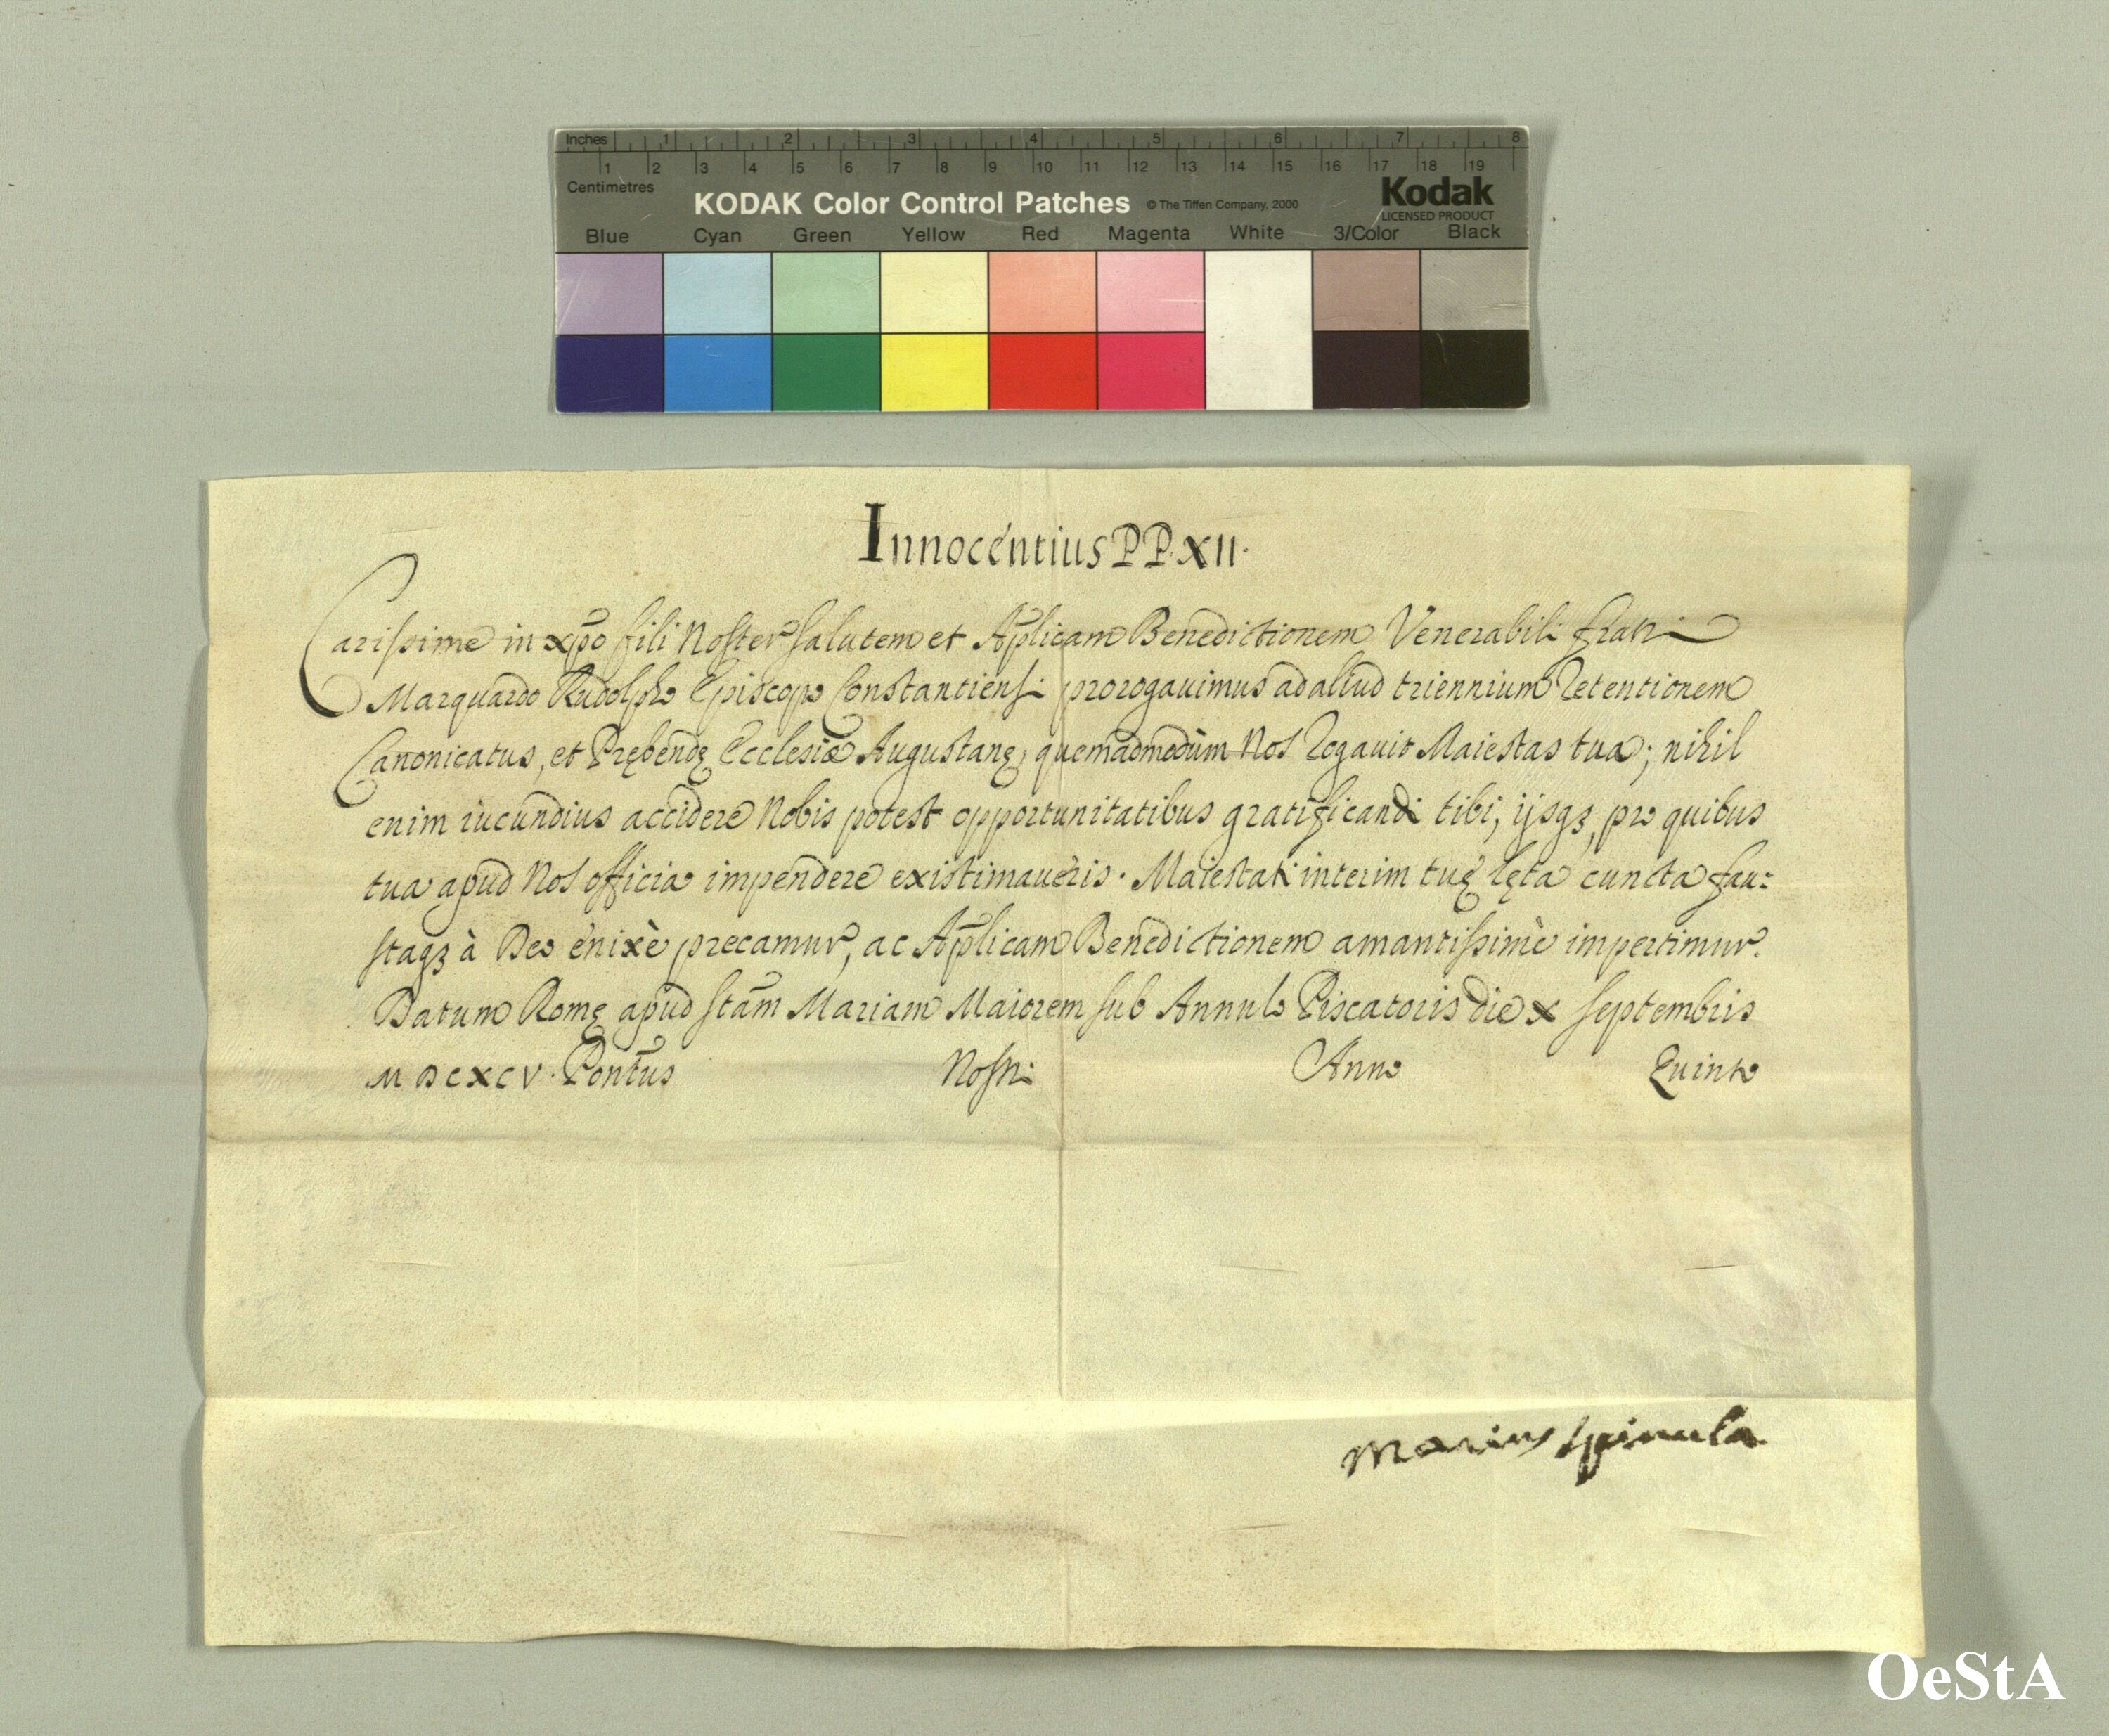 Inches 1 2 3 4 5 6 7 8
1 2 3 4 5 6 7 8 9 10 11 12 13 14 15 16 17 18 19
Centimetres
KODAK Color Control Patches © The Tiffen Company, 2000 Kodak
LICENSED PRODUCT
Blue Cyan Green Yellow Red Magenta White 3/Color Black
Innocentius PP. XII.
Carissime in xp̄o fili Noster salutem et Ap̄licam Benedictionem Venerabili fratri
Marquardo Rudolpho Episcopo Constantiensi prorogauimus ad aliud triennium retentionem
Canonicatus, et Prębendę Ecclesiæ Augustanę, quemadmodùm Nos rogauit Maiestas tua; nihil
enim iucundius accidere Nobis potest opportunitatibus gratificandi tibi, ijsqꝫ, pro quibus
tua apud Nos officia impendere existimaueris. Maiestati interim tuę lęta cuncta fau-
staqꝫ à Deo enixè precamur, ac Ap̄licam Benedictionem amantissimè impertimur.
Datum Romę apud stam̄ Mariam Maiorem sub Annulo Piscatoris die X septembris
MDCXCV. Pontus̄ Nostri Anno Quinto
Marius Spinula
OeStA